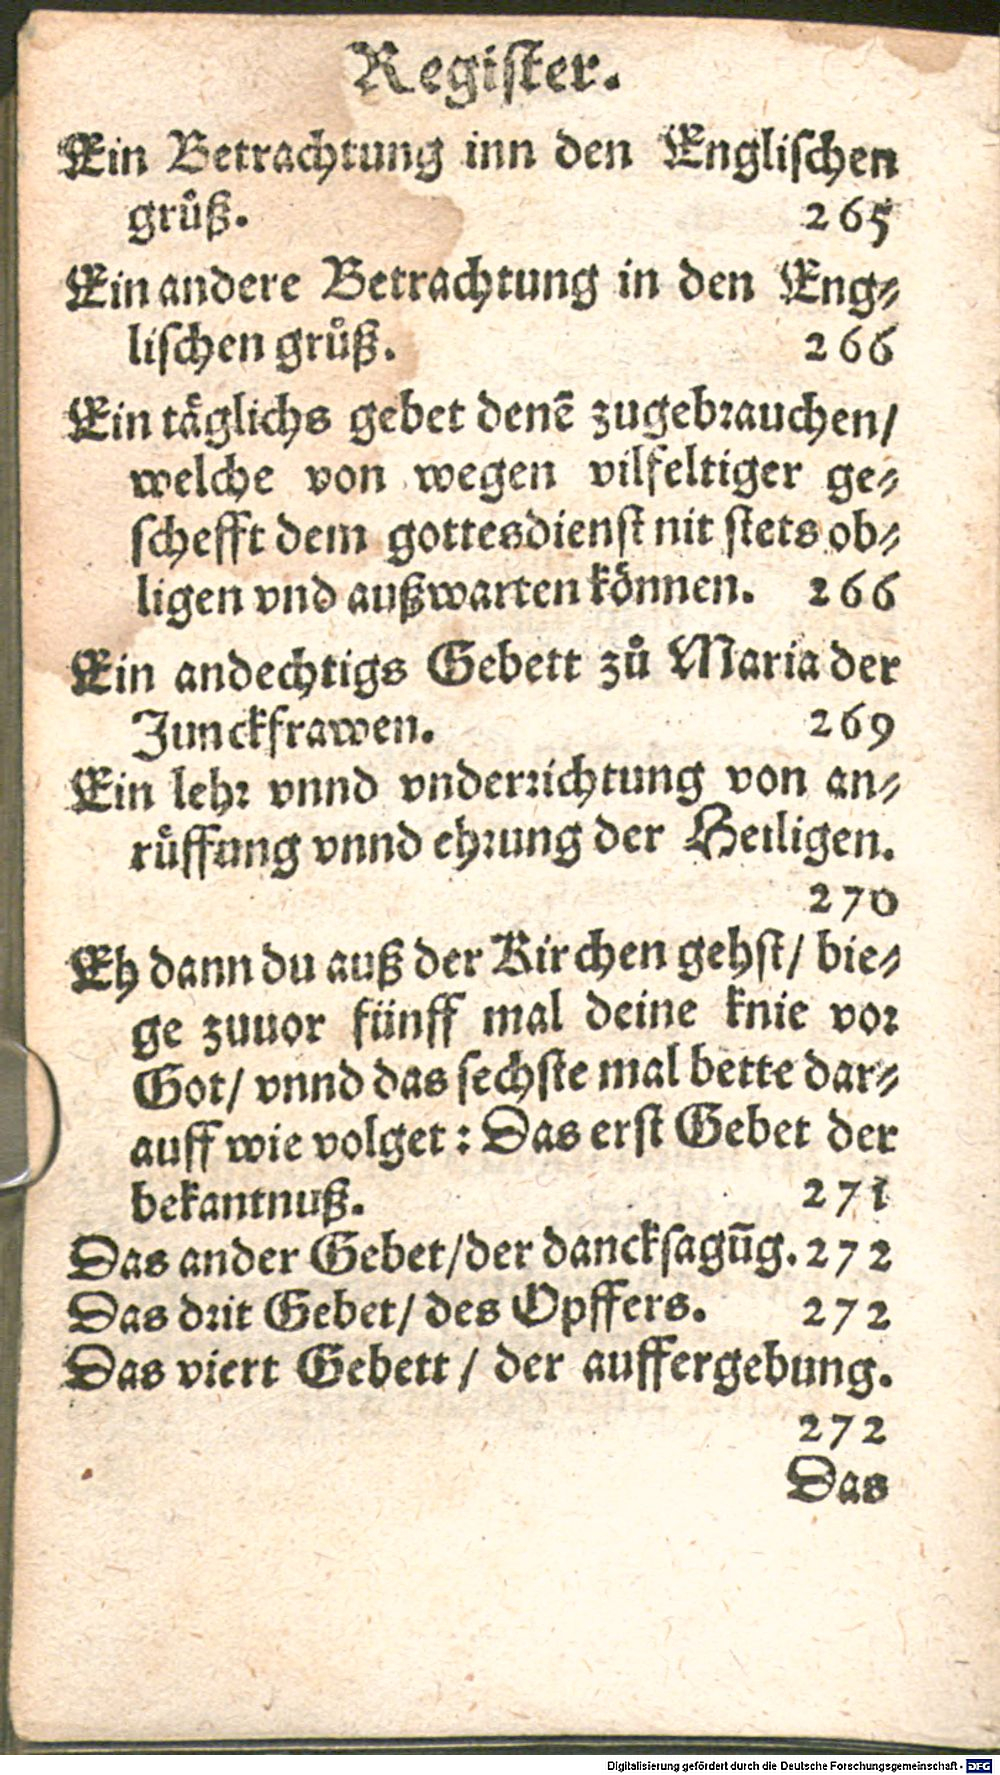 Register.
Ein Betrachtung inn den Englischen
gruͤß. 265
Ein andere Betrachtung in den Eng⸗
lischen gruͤß. 266
Ein taͤglichs gebet denẽ zugebrauchen/
welche von wegen vilfeltiger ge⸗
schefft dem gottesdienst nit stets ob⸗
ligen vnd außwarten koͤnnen. 266
Ein andechtigs Gebett zů Maria der
Junckfrawen. 269
Ein lehr vnnd vnderrichtung von an⸗
ruͤffung vnnd ehrung der Heiligen.
270
Eh dann du auß der Kirchen gehst/ bie⸗
ge zuuor fünff mal deine knie vor
Got/ vnnd das sechste mal bette dar⸗
auff wie volget: Das erst Gebet der
bekantnuß. 271
Das ander Gebet/der dancksagũg. 272
Das drit Gebet/ des Opffers. 272
Das viert Gebett / der auffergebung.
272
Das
Digitalisierung gefördert durch die Deutsche Forschungsgemeinschaft - DFG